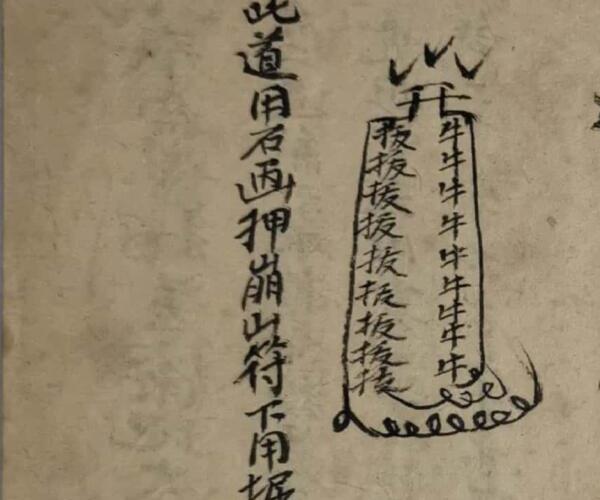 开
牛牛牛牛牛牛牛牛牛
拔拔拔拔拔拔拔拔拔
此道用石画押崩山符下用